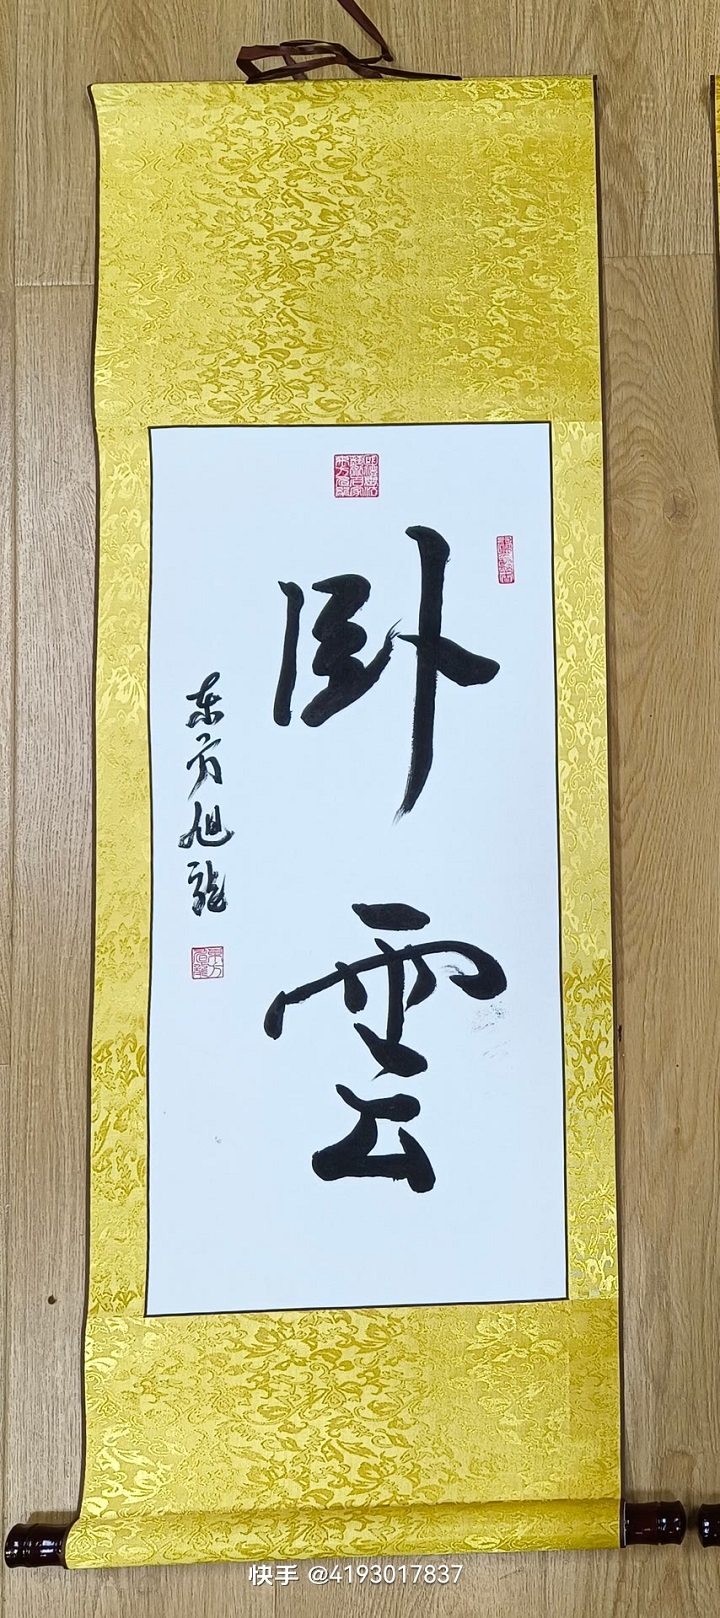 卧雲
东方旭龙
快手 @4193017837